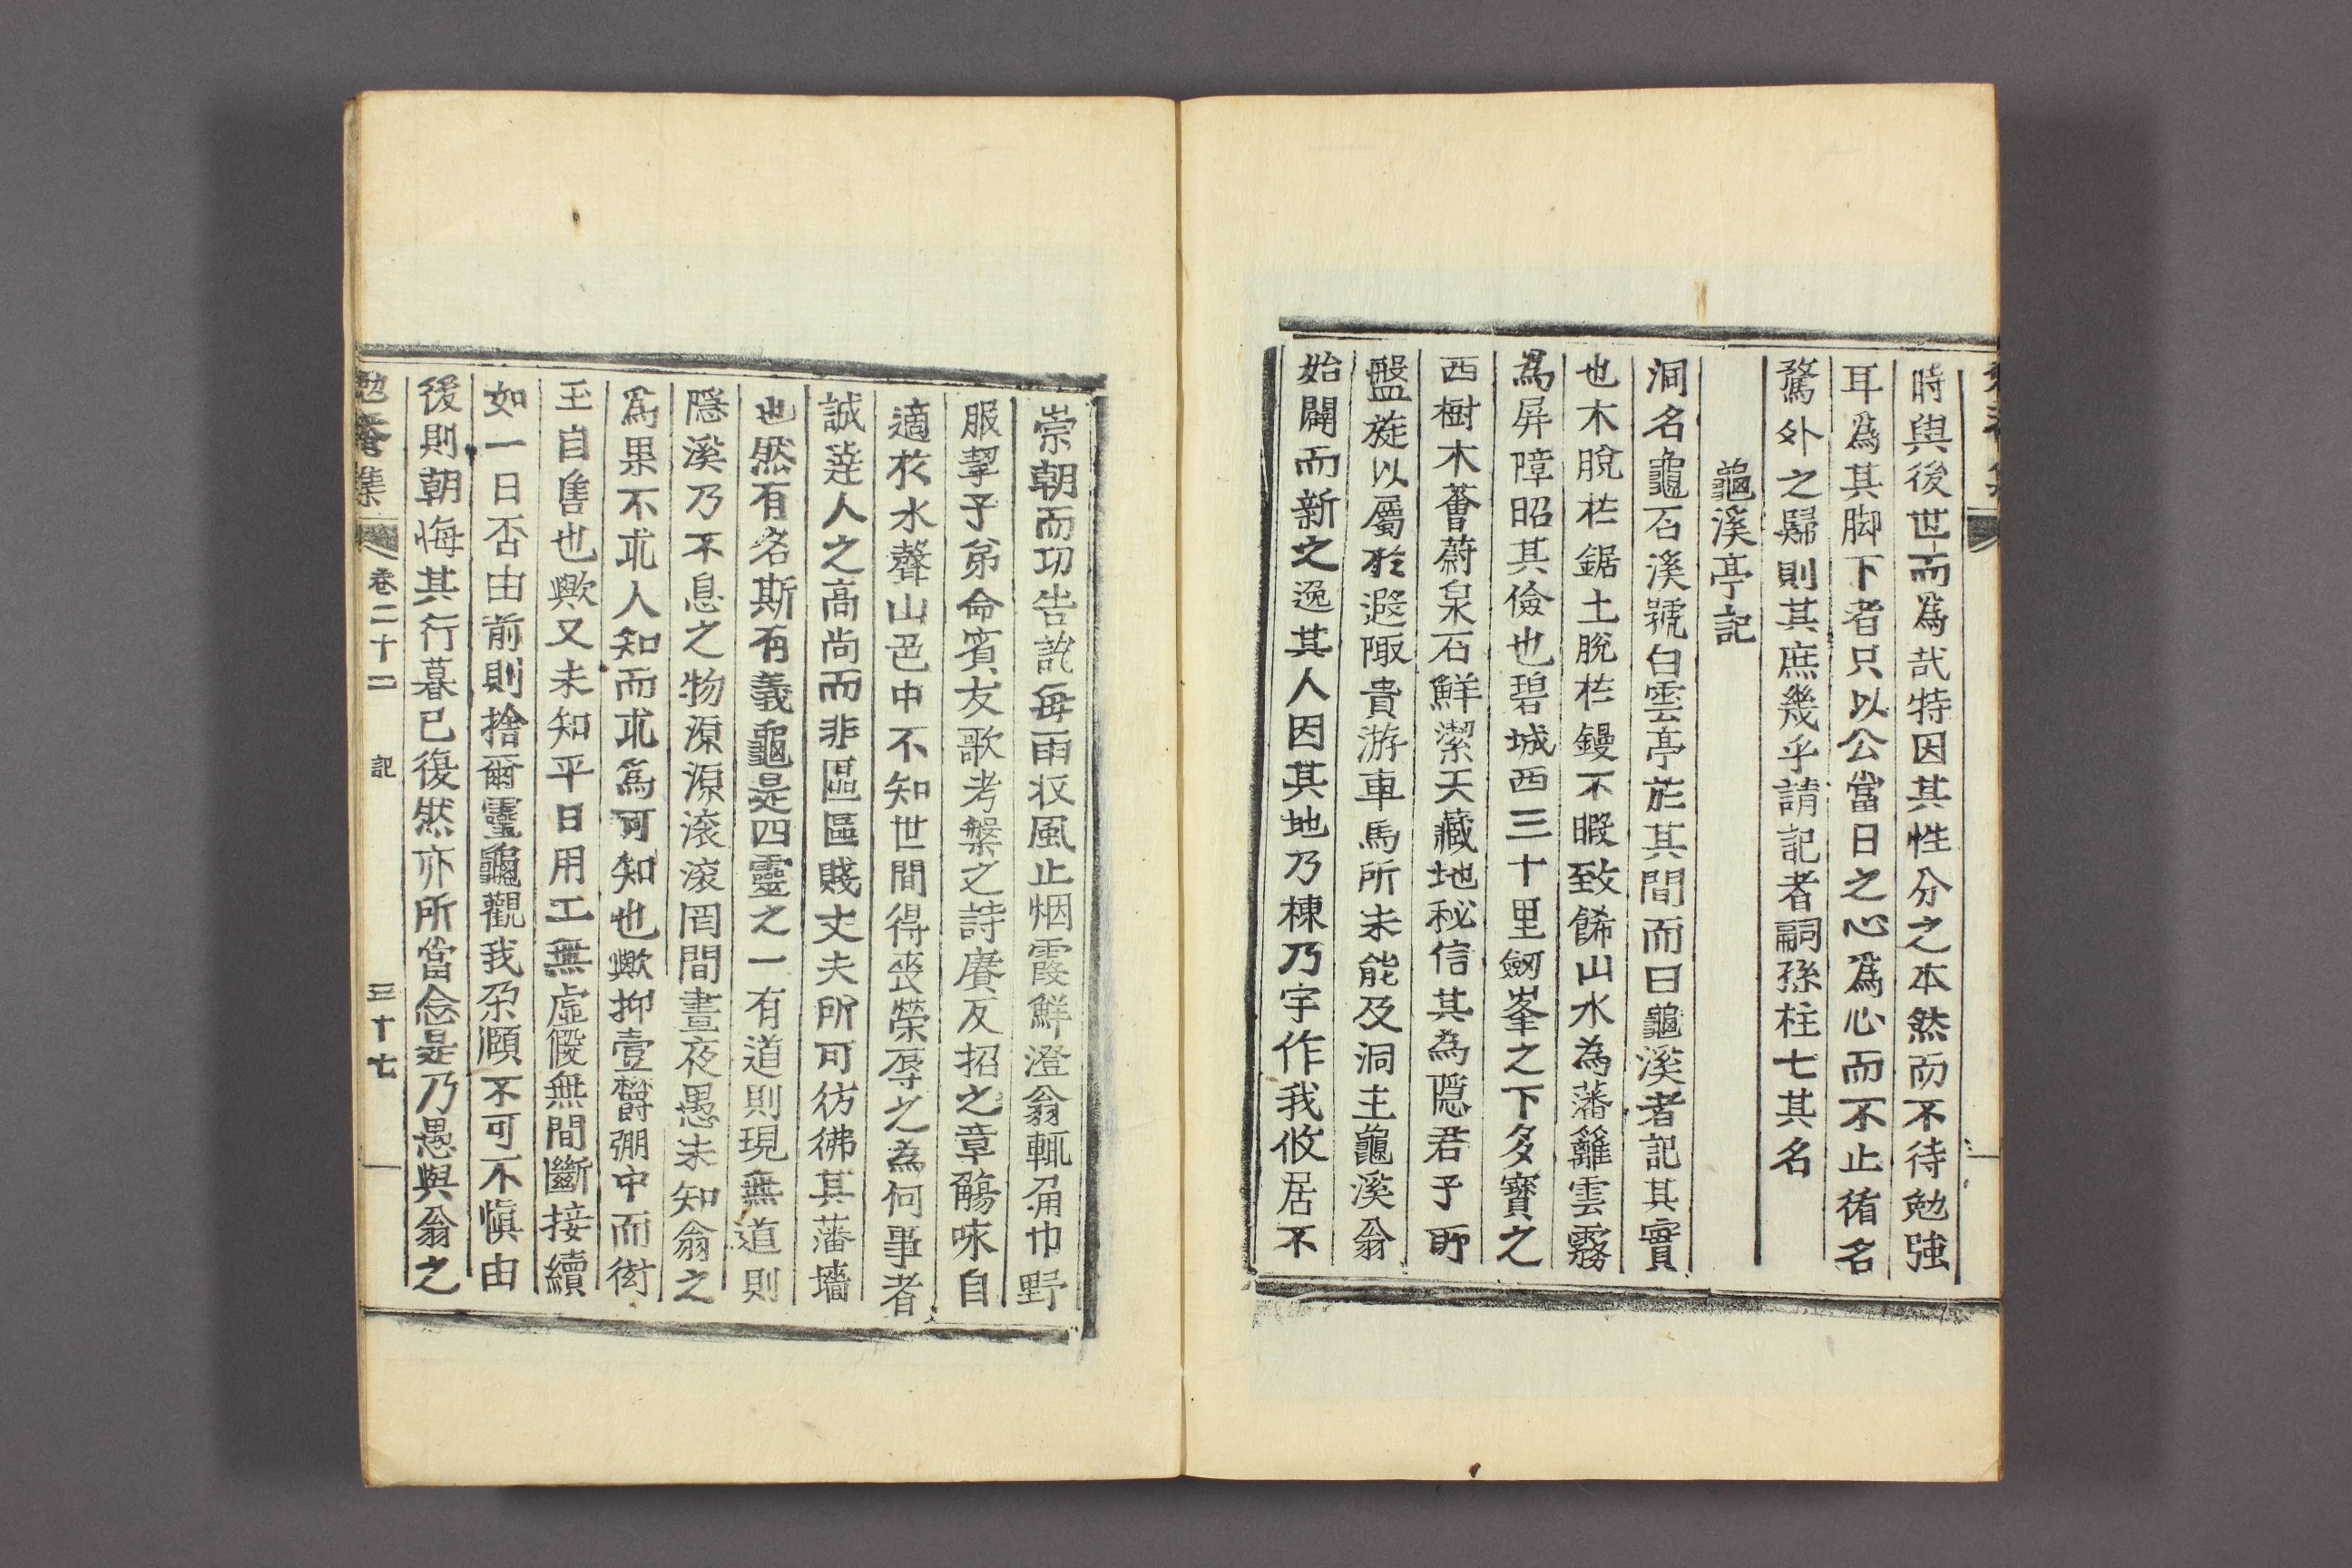 時與後世而爲哉特因其性分之本然而不待勉強
耳爲其脚下者只以公當日之心爲心而不止循名
騖外之歸則其庶幾乎請記者嗣孫柱七其名
龜溪亭記
洞名龜石溪號白雲亭於其間而曰龜溪者記其實
也木脫於鋸土脫於鏝不暇致餙山水為藩籬雲霧
為屛障昭其儉也碧城西三十里劒峯之下多寶之
西樹木薈蔚泉石鮮潔天藏地秘信其為隱君子所
盤旋以屬於遐陬貴游車馬所未能及洞主龜溪翁
始闢而新之逸其人因其地乃棟乃宇作我攸居不
崇朝而功告訖每雨收風止烟霞鮮澄翁輒角巾野
服挈子弟命賓友歌考槃之詩賡反招之章觴咏自
適於水聲山色中不知世間得喪榮辱之為何事者
誠達人之高尚而非區區賤丈夫所可彷彿其藩墻
也然有名斯有義龜是四靈之一有道則現無道則
隱溪乃不息之物源源滚滚罔間晝夜愚未知翁之
爲果不求人知而求爲可知也歟抑壹欝弸中而衒
玉自售也歟又未知平日用工無虛假無間斷接續
如一日否由前則捨爾靈龜觀我朶頤不可不愼由
後則朝悔其行暮已復然亦所當念是乃愚與翁之
勉菴集 卷二十二 記 三十七